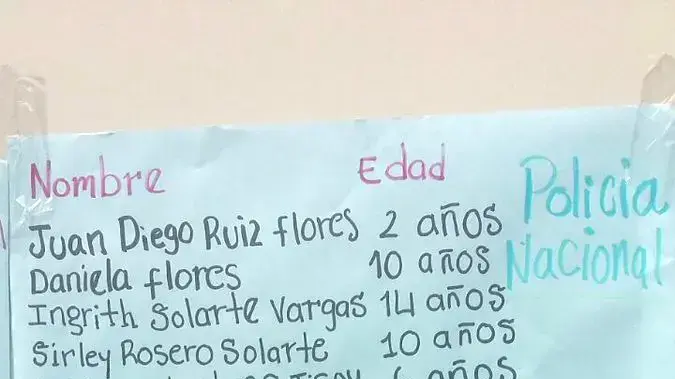 Nombre Edad Policia
Juan Diego Ruiz flores 2 años
Daniela flores 10 años Nacional
Ingrith Solarte Vargas 14 años
Sirley Rosero Solarte 10 años
años